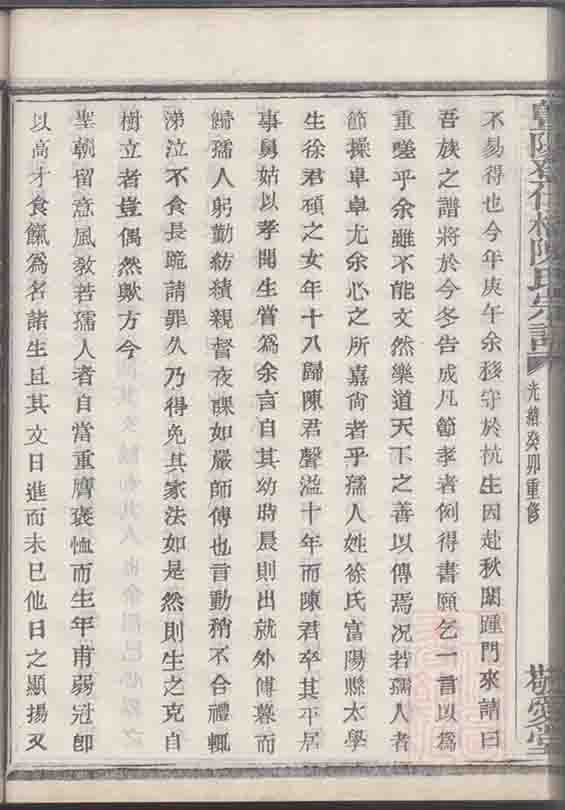 陳氏宗譜
光緒癸卯重修
敬愛堂
不易得也今年庚午余移守於杭生因赴秋闈踵門來請曰
吾族之譜將於今冬告成凡節孝者例得書願乞一言以爲
重嗟乎余雖不能文然樂道天下之善以傳焉況若孺人者
節操卓卓尤余心之所嘉尚者乎孺人姓徐氏富陽縣太學
生徐君碩之女年十八歸陳君聲溢十年而陳君卒其平居
事舅姑以孝聞生嘗爲余言自其幼時晨則出就外傅暮而
歸孺人躬勤紡績親督夜課如嚴師傅也言動稍不合禮輒
涕泣不食長跪請罪久乃得免其家法如是然則生之克自
樹立者豈偶然歟方今
聖朝留意風敎若孺人者自當重膺褒恤而生年甫弱冠卽
以高才食餼爲名諸生且其文日進而未已他日之顯揚又